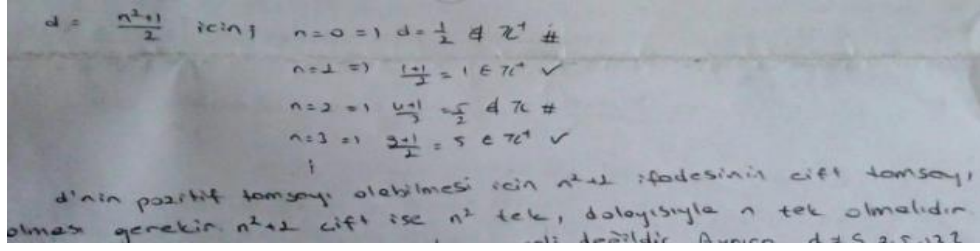 d = n²+1/2 için; n=0 => d=1/2 ∉ Z⁺ #
n=1 => 1+1/2 = 1 ∈ Z⁺ ✓
n=2 => 4+1/2 = 5/2 ∉ Z #
n=3 => 9+1/2 = 5 ∈ Z⁺ ✓
⋮
d'nin pozitif tamsayı olabilmesi için n²+1 ifadesinin çift tamsayı
olması gerekir. n²+1 çift ise n² tek, dolayısıyla n tek olmalıdır
değildir Ayrıca d≠